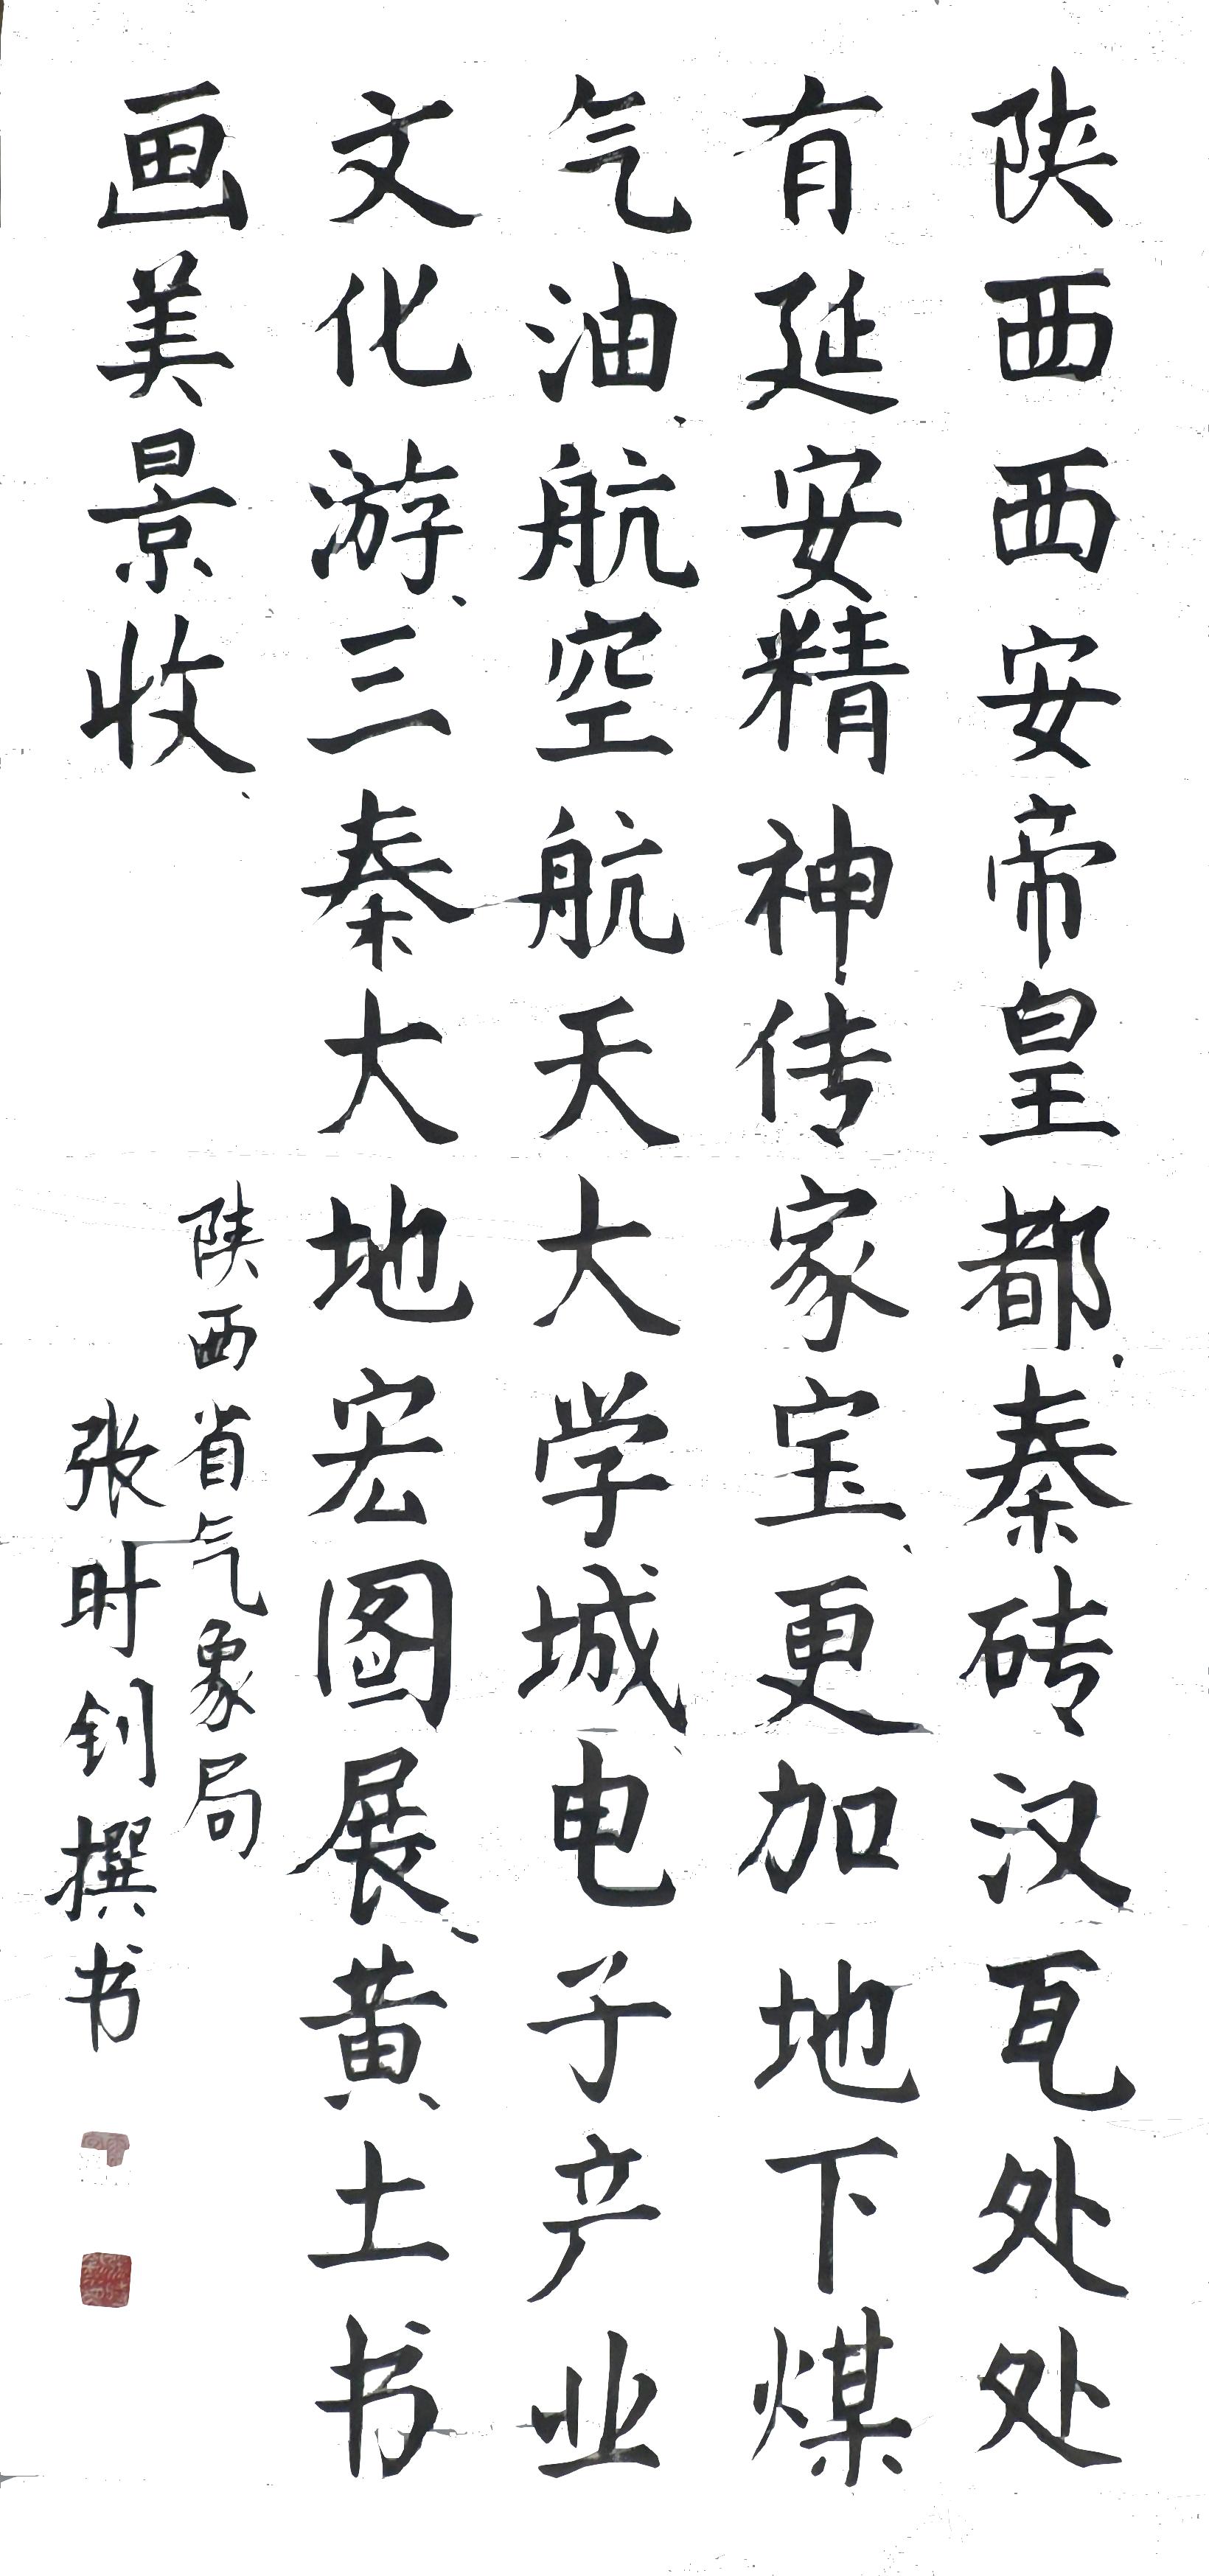 陕西西安帝皇都、秦砖汉瓦处处
有延安精神传家宝、更加地下煤
气油、航空航天大学城、电子产业
文化游、三秦大地宏图展、黄土书
画美景收、
陕西省气象局
张时钊撰书